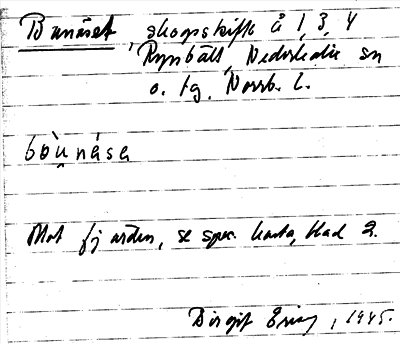 Bunäset, skogsskifte å 1, 3, 4
Rynbält, Nederkalix sn
o. tg. Norrb. l.
bòu̯nása
Mot fjärden, se spec. karta, blad 2.
Birgit 1945.